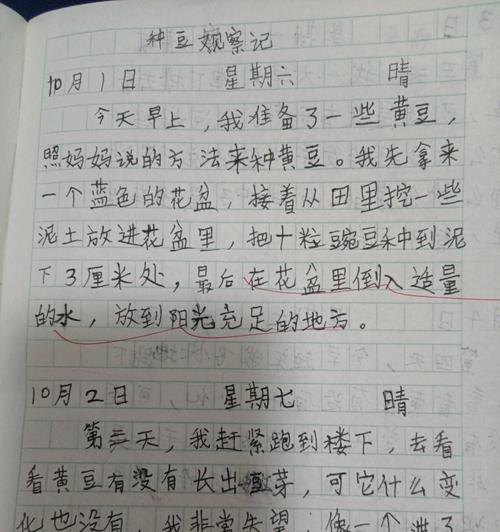 种豆观察记
10月1日 星期六 晴
今天早上，我准备了一些黄豆，
照妈妈说的方法来种黄豆。我先拿来
一个蓝色的花盆，接着从田里挖一些
泥土放进花盆里，把十粒豌豆种到泥
下3厘米处，最后在花盆里倒入适量
的水，放到阳光充足的地方。
10月2日 星期七 晴
第二天，我赶紧跑到楼下，去看
看黄豆有没有长出豆芽，可它什么变
化也没有，我非常失望，像一个进了